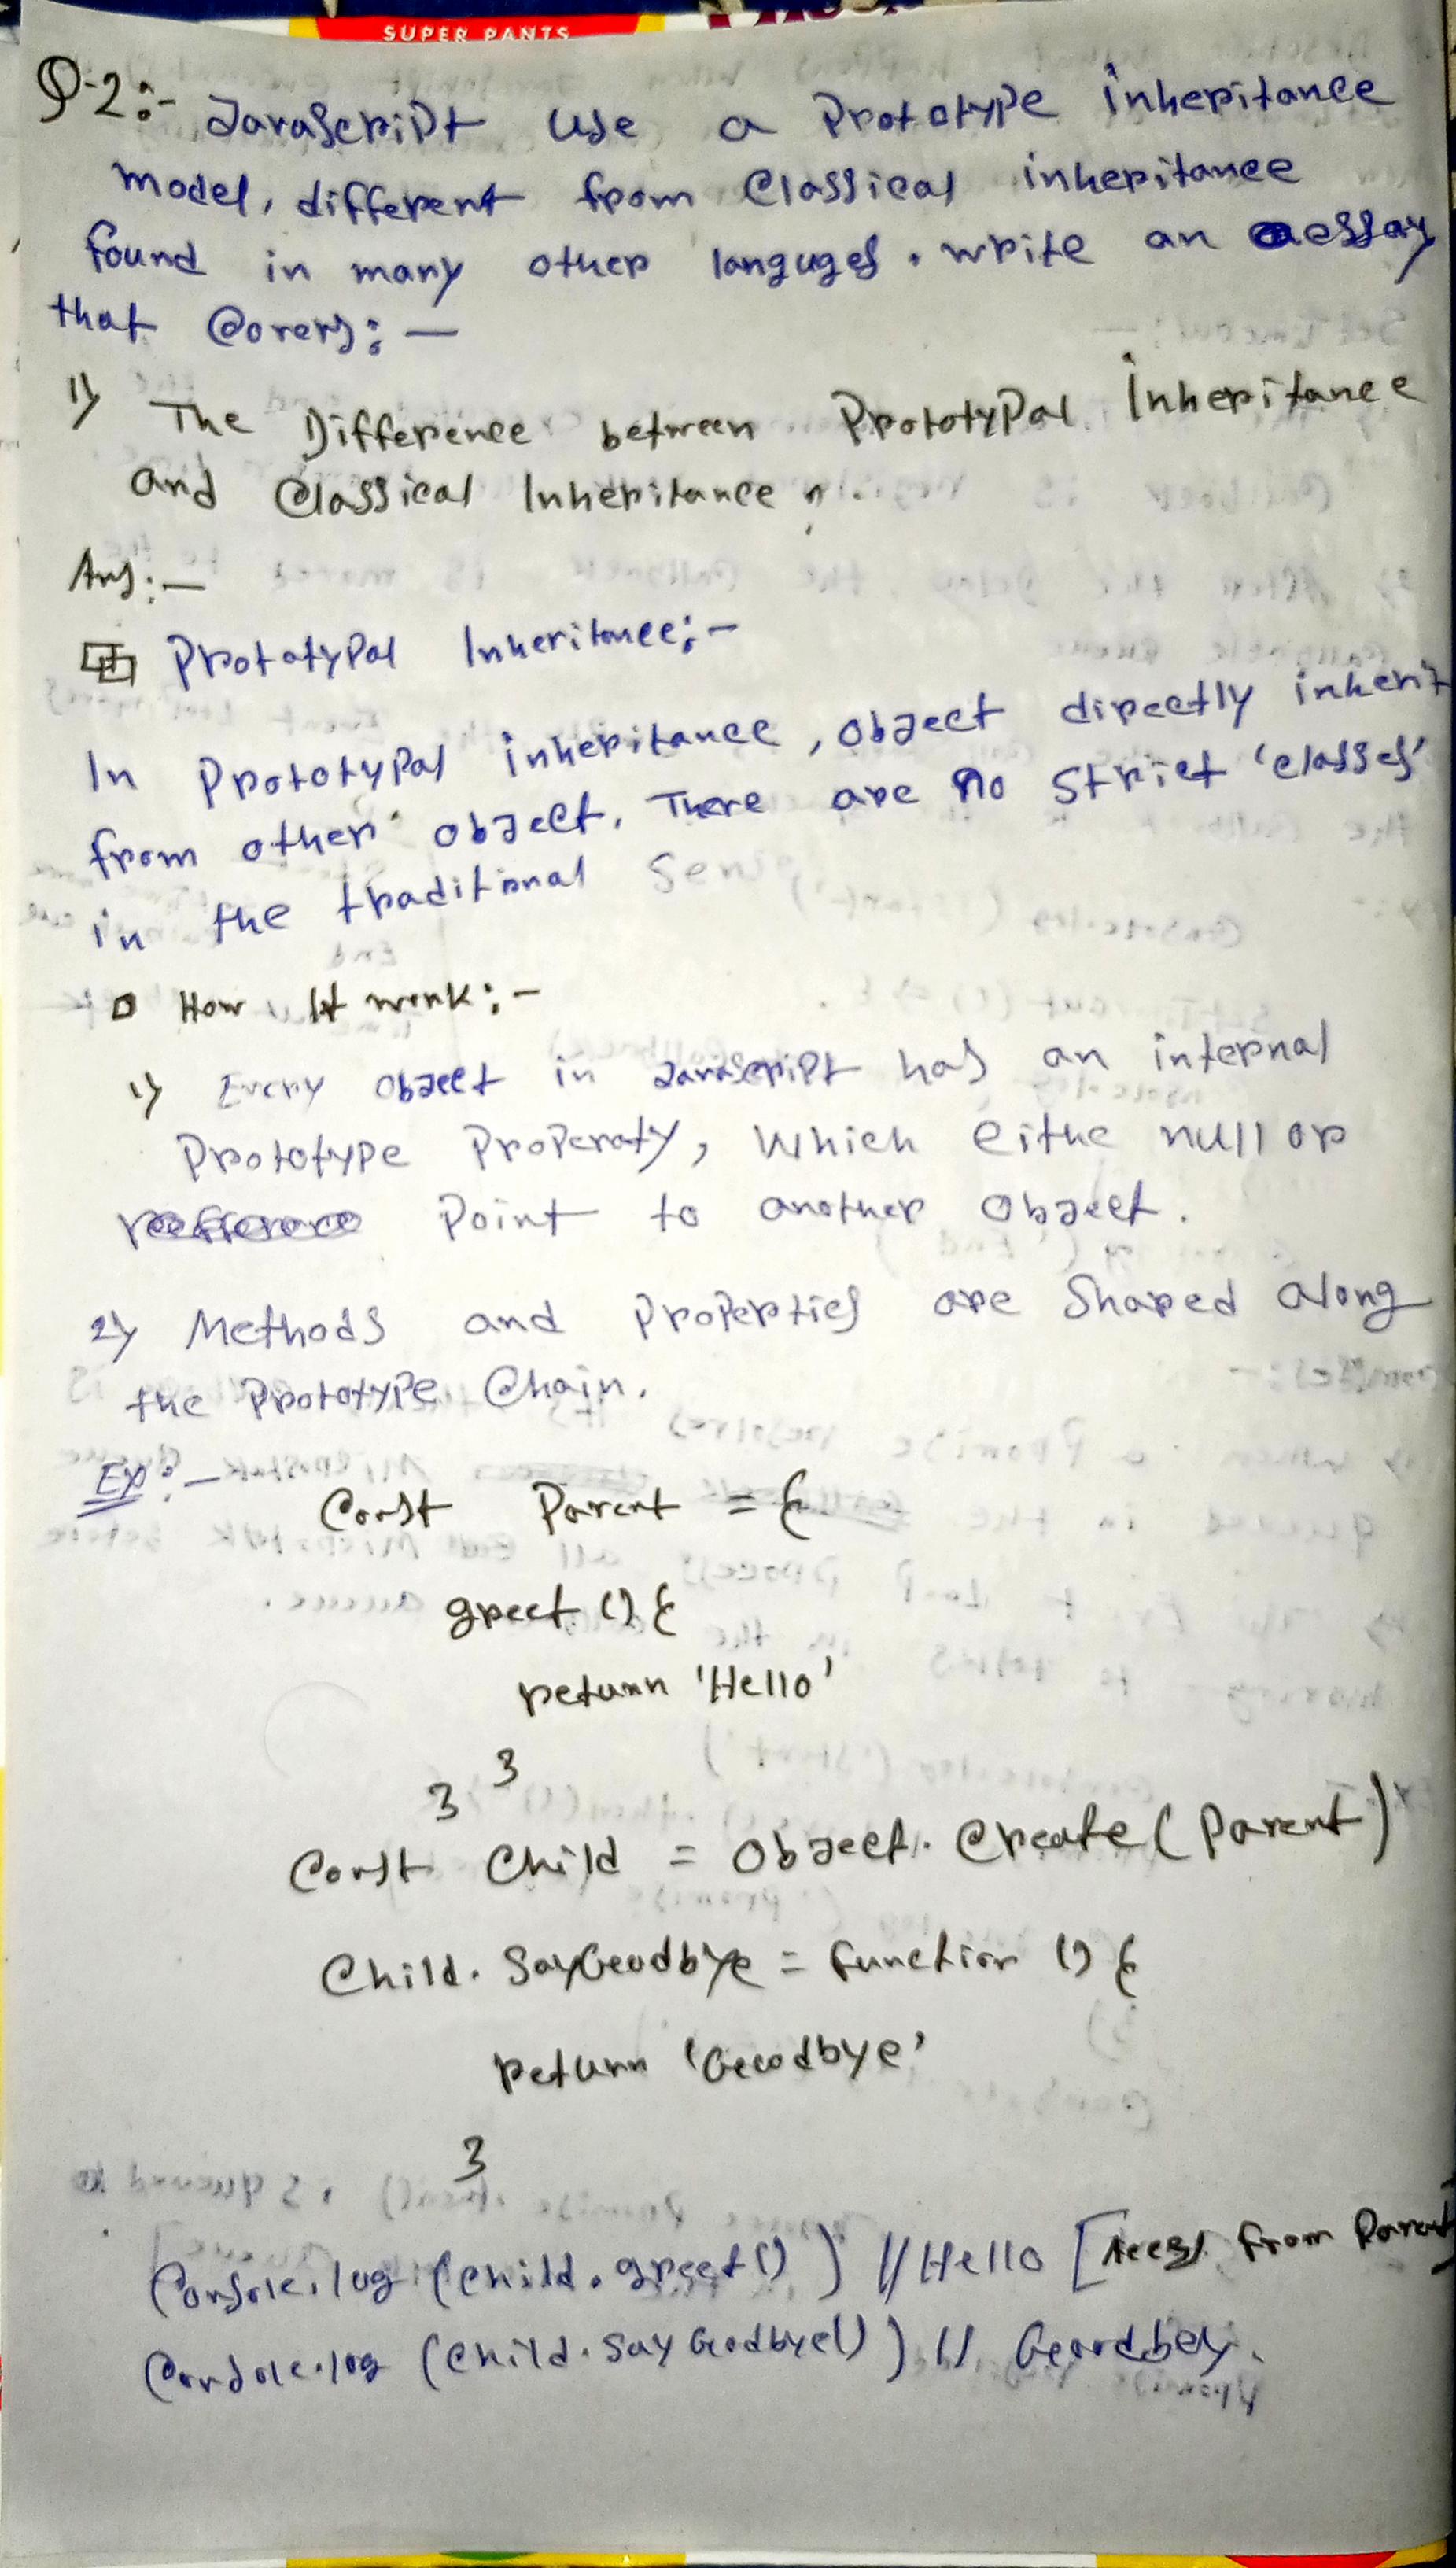 SUPER PANTS
Q-2:- JavaScript use a Prototype inheritance
model, different from Classical inheritance
found in many other languges. write an essay
that Covers:—
1) The Difference between Prototypal Inheritance
and Classical Inheritance
Ans:—
Prototypal Inheritance:-
In Prototypal inheritance, object directly inherit
from other object. There are no strict 'classes'
in the traditional Sense
How It work:-
1) Every object in Javascript has an internal
Prototype Properaty, which eithe null or
Point to another object.
2) Methods and Properties are Shared along
the Prototype Chain.
Ex:—
Const Parent = {
greet () {
return 'Hello'
}
}
Const Child = Object. Create (Parent)
Child. SayGoodbye = function () {
return 'Goodbye'
}
Console.log (Child. greet()) // Hello [Access from Parent]
Console.log (Child. Say Goodbye()) // Goodbey.